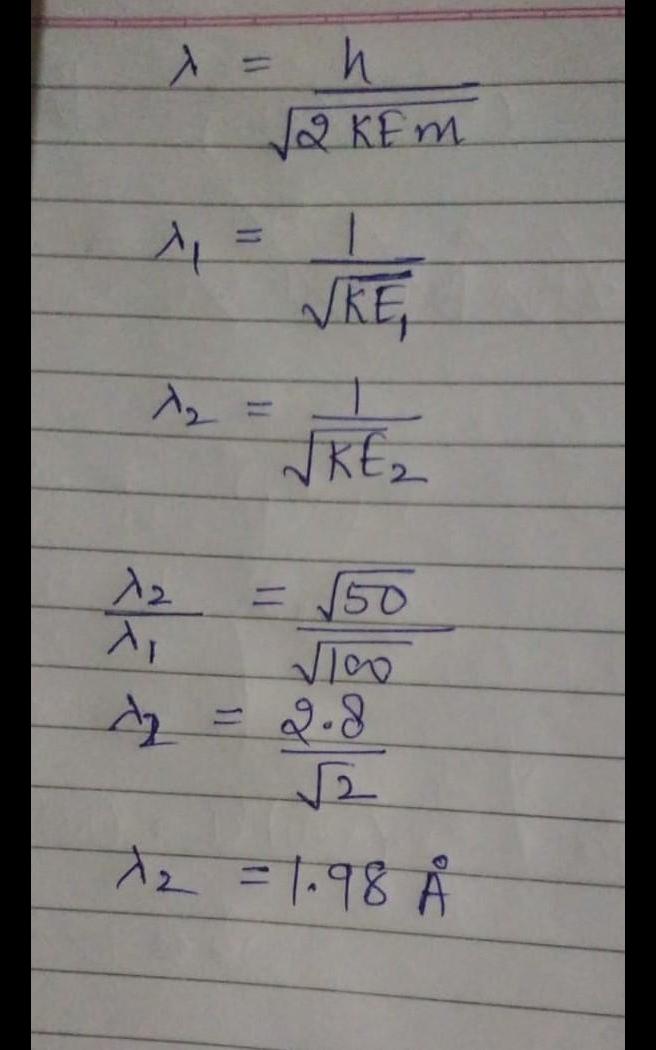 λ = h / √2 KE m
λ₁ = 1 / √KE₁
λ₂ = 1 / √KE₂
λ₂ / λ₁ = √50 / √100
λ₂ = 2.8 / √2
λ₂ = 1.98 Å